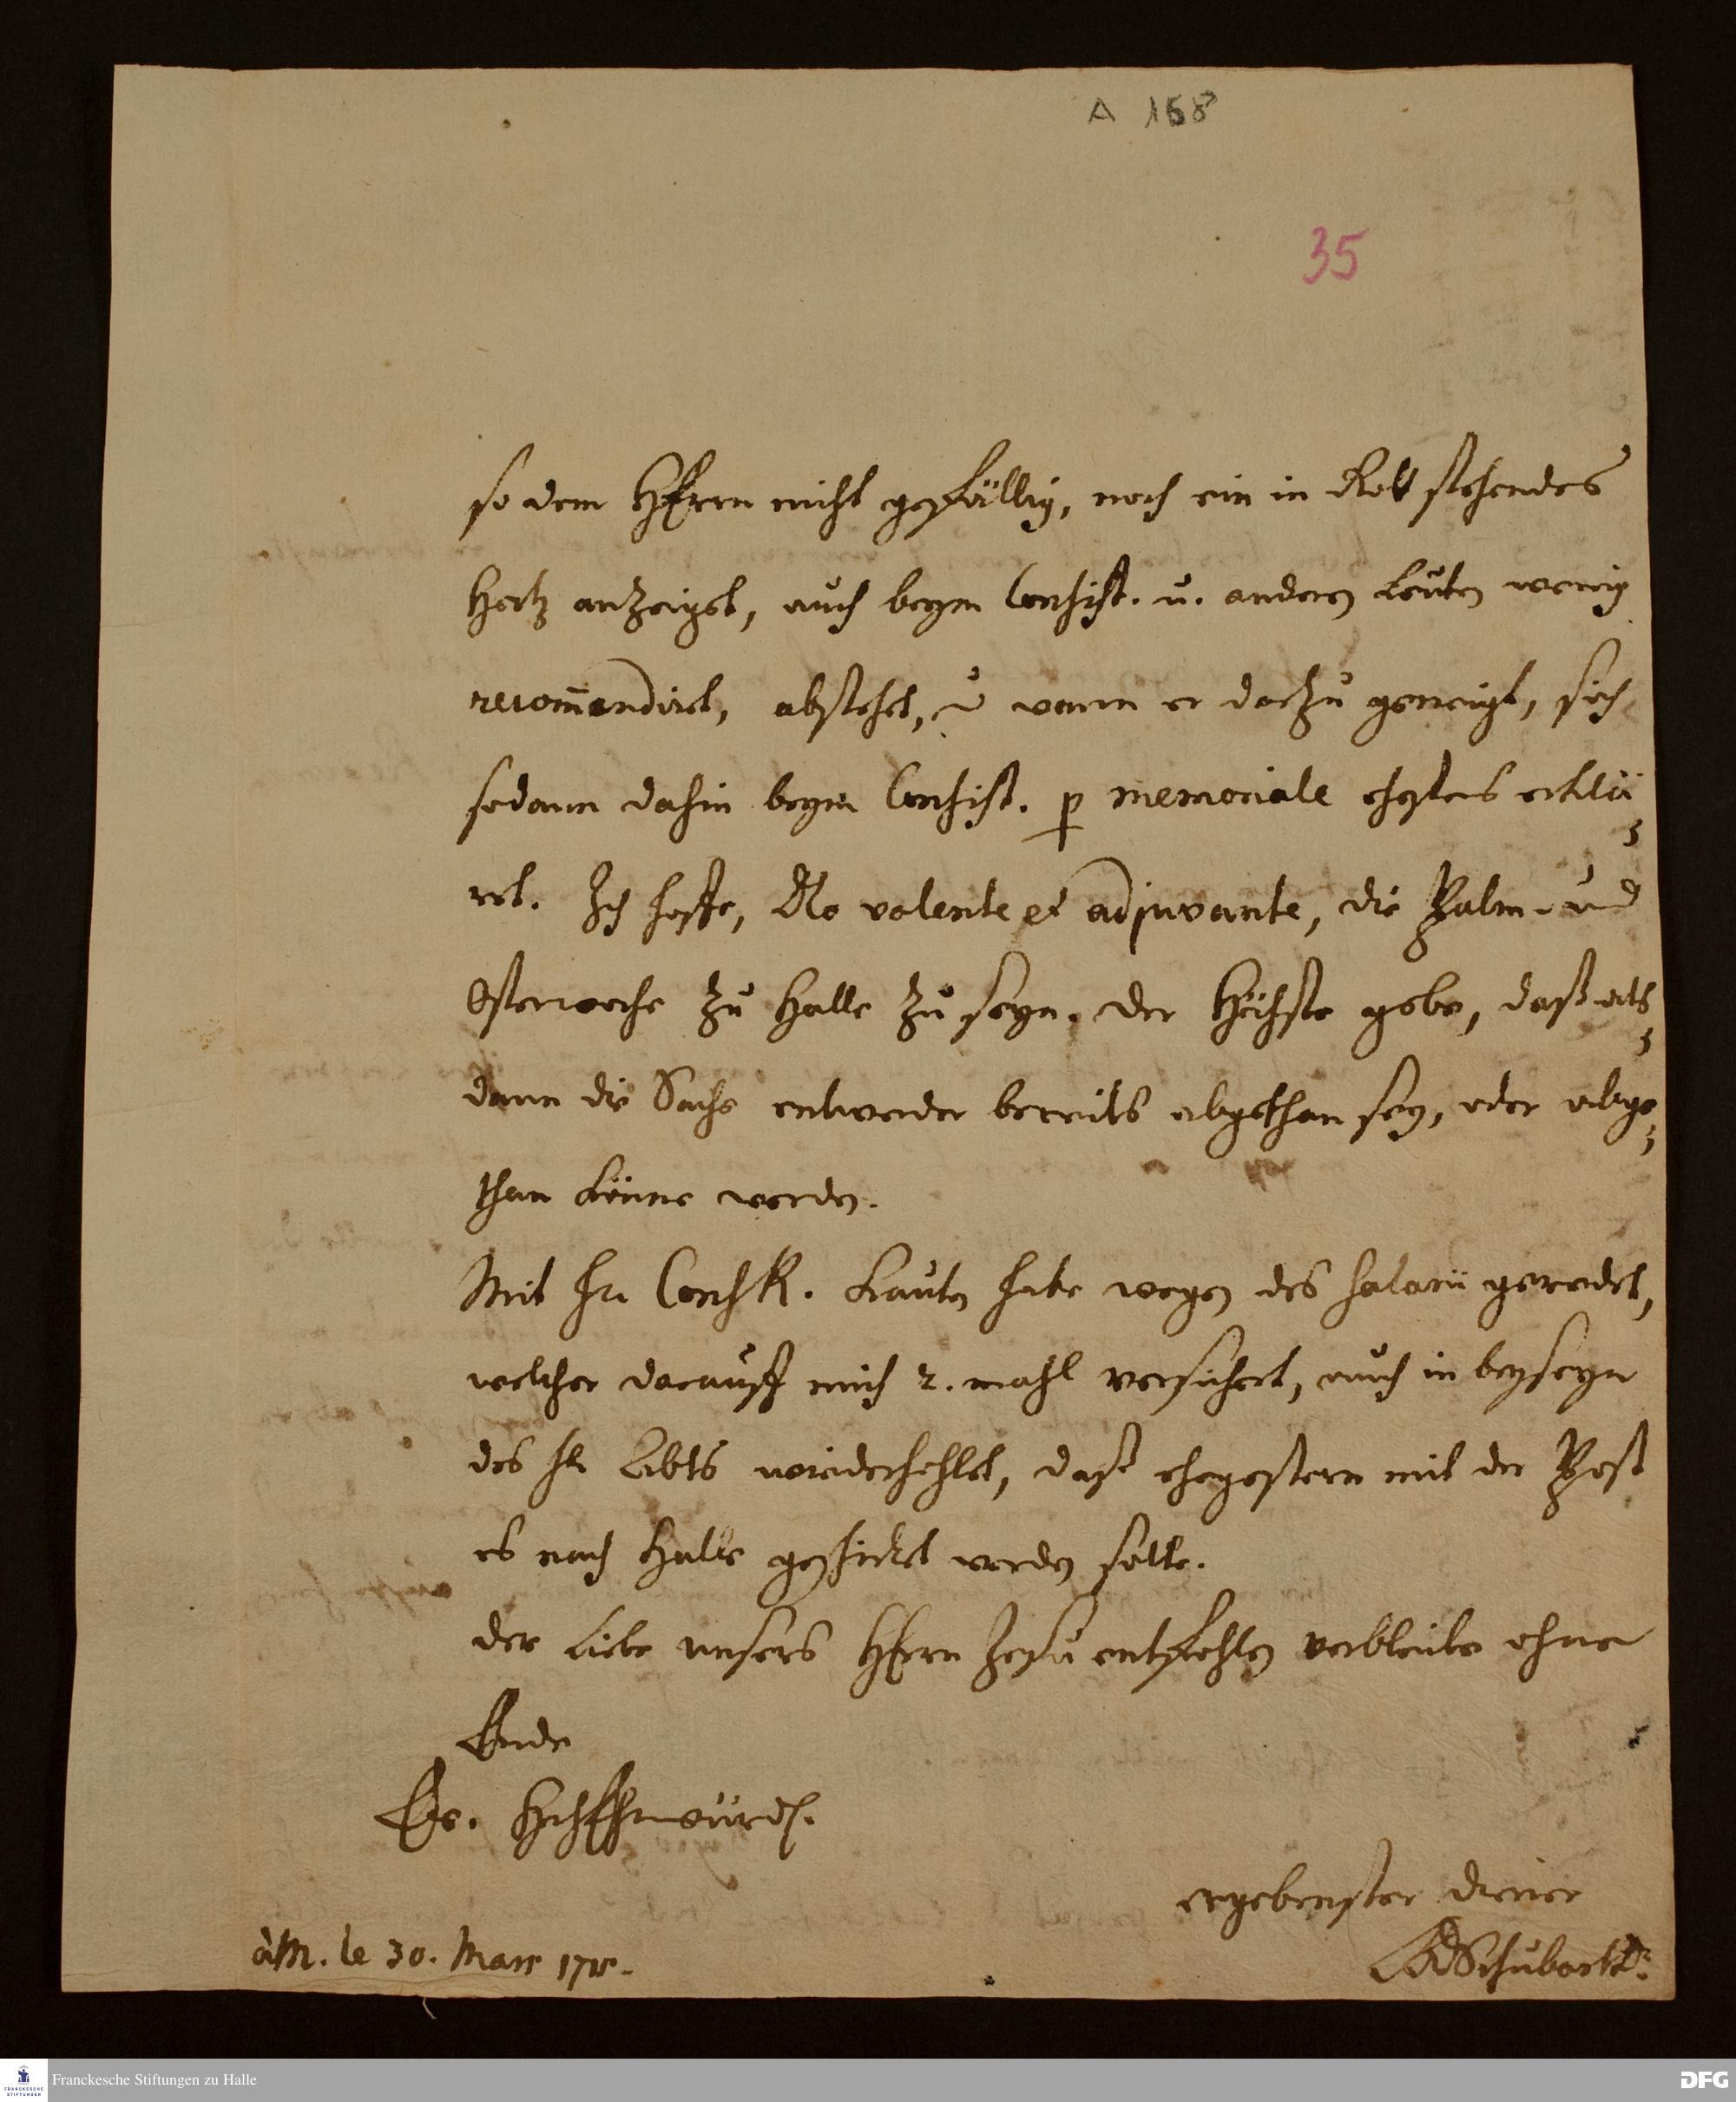 A 168
35
so dem HErrn nicht gefällig, noch ein in Gott stehendes
Hertz anzeiget, auch beym Consist. u. anderen Leuten wenig
recom̄endiret, abstehet, u. wenn er darzu geneigt, sich
sodann dahin beym Consist. p memoriale ehestens erklä=
ret. Ich hoffe, Deo volente et adjuvante, die Palm- und
Osterwoche zu Halle zu seyn. der Höchste gebe, daß als=
dann die Sache entweder bereits abgethan sey, oder abge=
than könne werden.
Mit Hr. ConsR. Lauten habe wegen des Salarii geredet,
welcher darauff mich 2. mahl versichert, auch in beyseyn
des Hr Abts wiederhohlet, daß ehegestern mit der Post
es nach Halle geschicket werden solle.
der Liebe unsers HErrn Jesu entpfohlen verbleibe ohne
Ende
Ew. HochEhrwürd.
ergebenster diener
Schubart
à M. le 30. Mars
Franckesche Stiftungen zu Halle
DFG